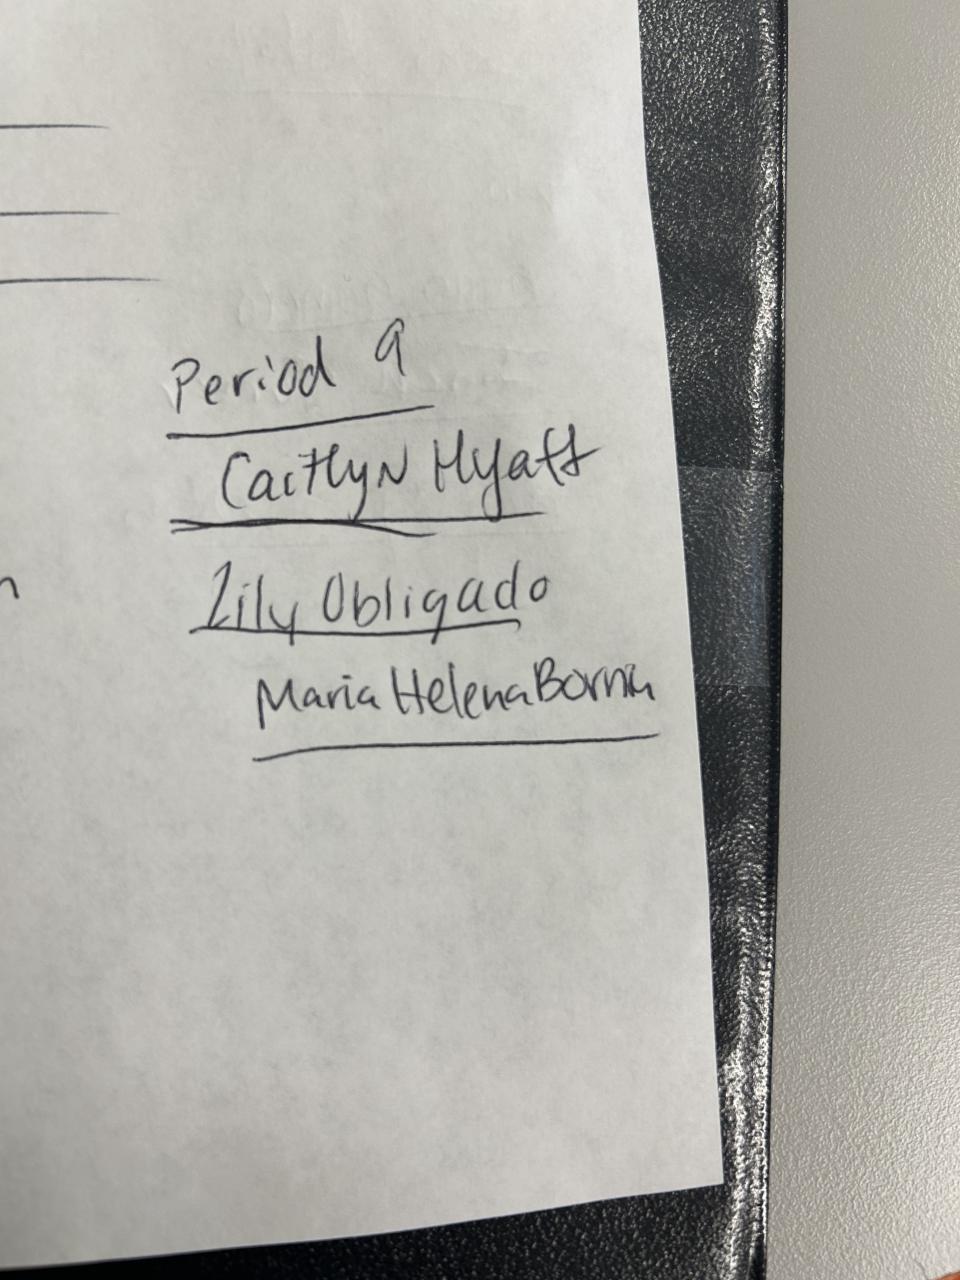 Period 9
Caitlyn Hyatt
Lily Obligado
Maria Helena